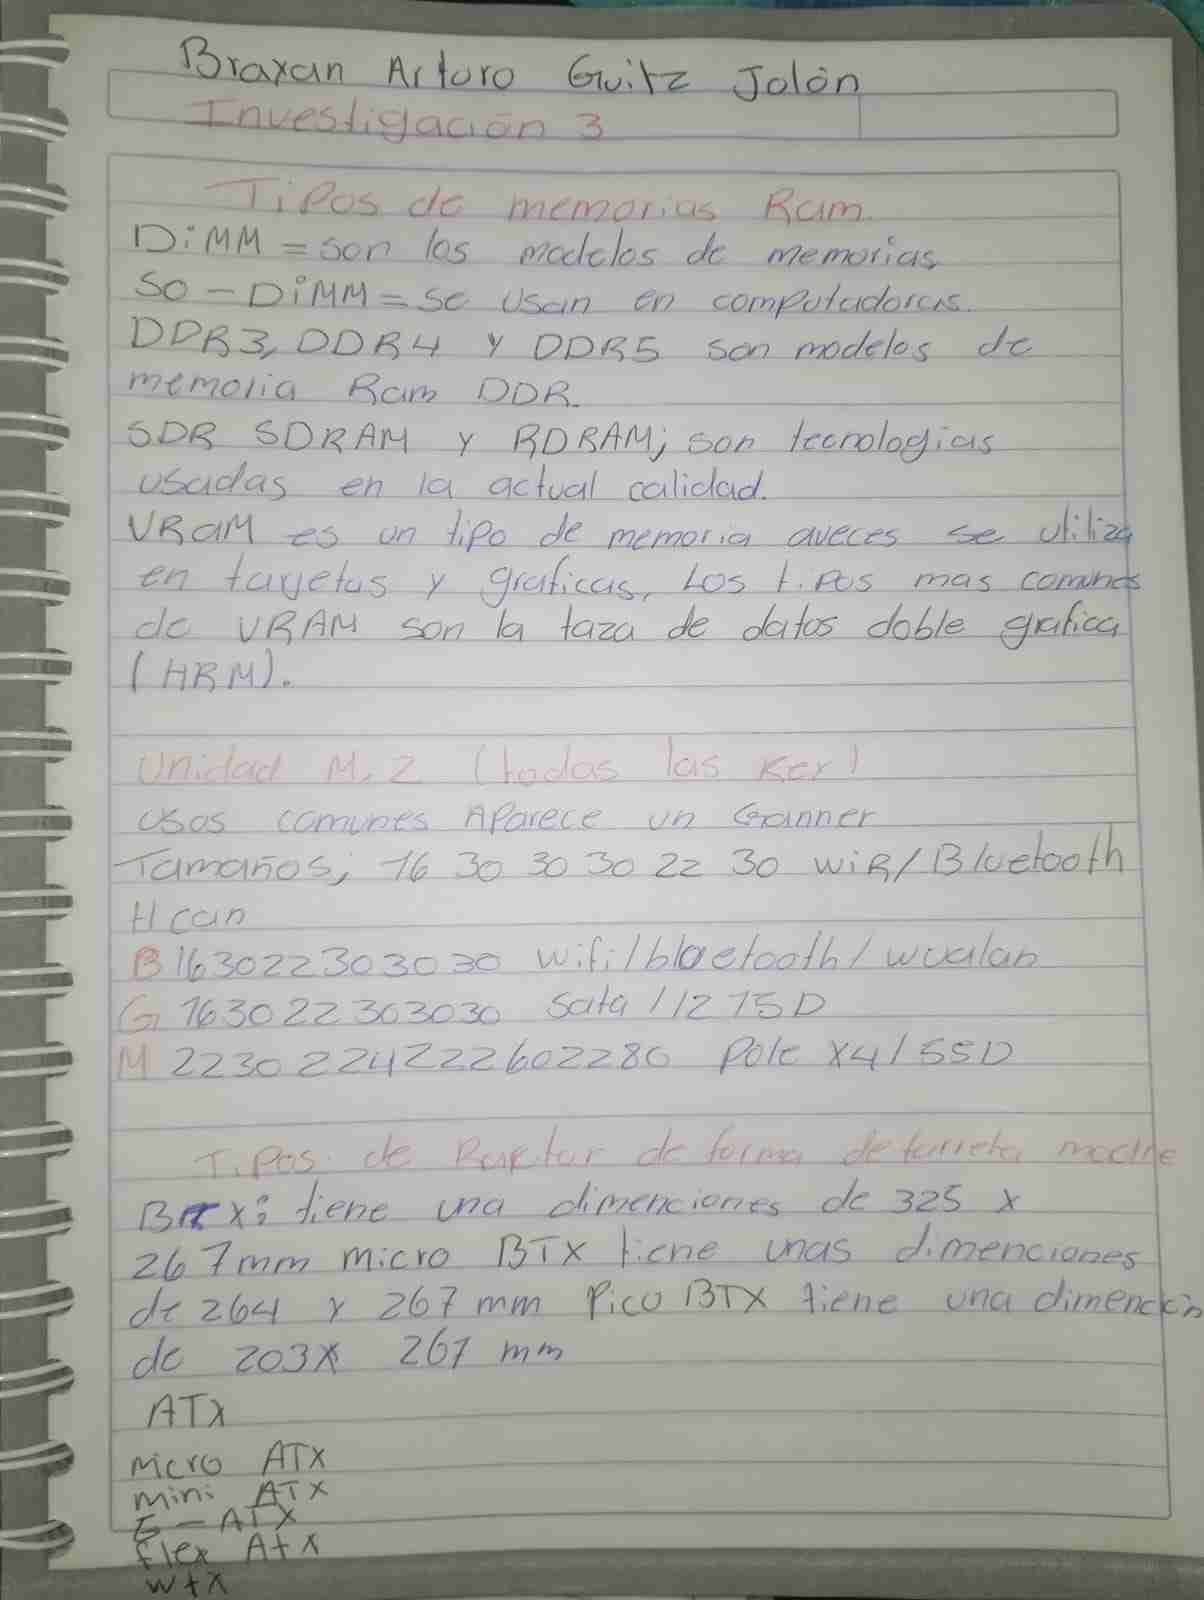 Braxan Arturo Guitz Jolón
Investigación 3
Tipos de memorias Ram
DiMM = son los modelos de memorias
SO - DiMM = se usan en computadoras.
DDR3, DDR4 y DDR5 son modelos de
memoria Ram DDR.
SDR SDRAM y RDRAM; son tecnologias
usadas en la actual calidad.
VRAM es un tipo de memoria aveces se utiliza
en tarjetas y graficas, Los tipos mas comunes
de VRAM son la taza de datos doble grafica
(HRM).
Unidad M.2 (todas las Ker)
usos comunes Aparece un Ganner
Tamaños; 16 30 30 30 22 30 WiR/Bluetooth
H can
B 163022303030 wifi/bluetooth/wualan
G 163022303030 Sata 11275D
M 2230224222602280 Pole x4/SSD
Tipos de Raktor de forma de tarreta madre
BTX: tiene una dimenciones de 325 x
267mm micro BTX tiene unas dimenciones
de 264 y 267 mm Pico BTX tiene una dimención
de 203x 267 mm
ATX
Micro ATX
mini ATX
E-ATX
flex Atx
wtx